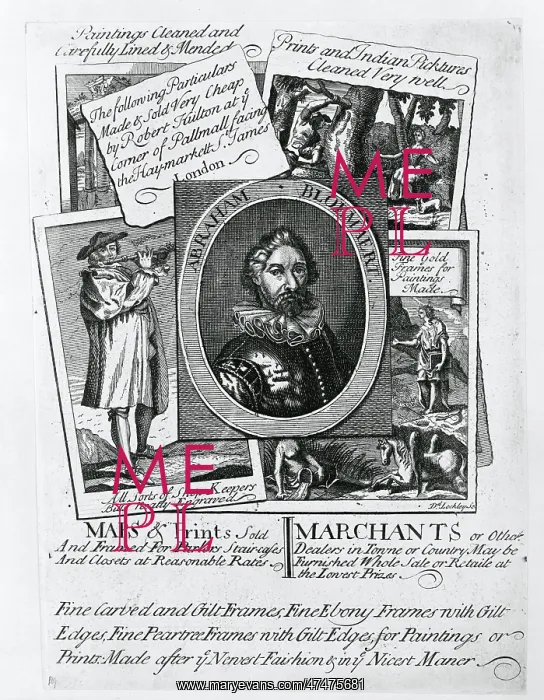 Paintings Cleaned and
Carefully Lined & Mended
Prints and Indian Picktures
Cleaned Very well
The following Particulars
Made & Sold Very Cheap
by Robert Fulton at yͤ
Corner of Pallmall facing
the Haymarkett S.ᵗ James
London
ABRAHAM · BLOEMAERT.
Fine Gold
Frames for
Paintings
Made
ME
PL
ME
PL
All Sorts of Keepers
Engraved
MAPS & Prints Sold
And Framed For Parlors Staircases
And Closets at Reasonable Rates
MARCHANTS or Other
Dealers in Towne or Country May be
Furnished Whole Sale or Retaile at
the Lowest Prizes
Fine Carved and Gilt Frames, Fine Ebony Frames with Gilt
Edges, Fine Peartree Frames with Gilt Edges, for Paintings or
Prints Made after yͤ Newest Faishion & in yͤ Nicest Maner
www.maryevans.com/47475681